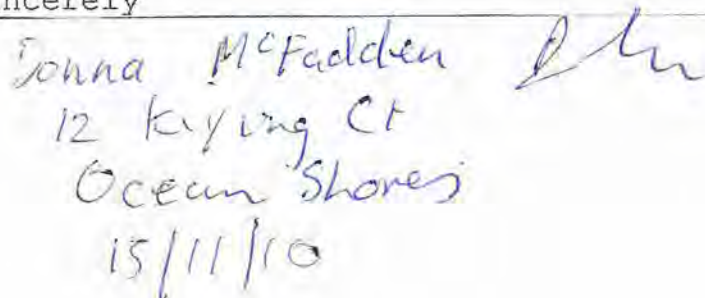 ncerely
Donna McFadden
12 Kiying Ct
Ocean Shores
15/11/10